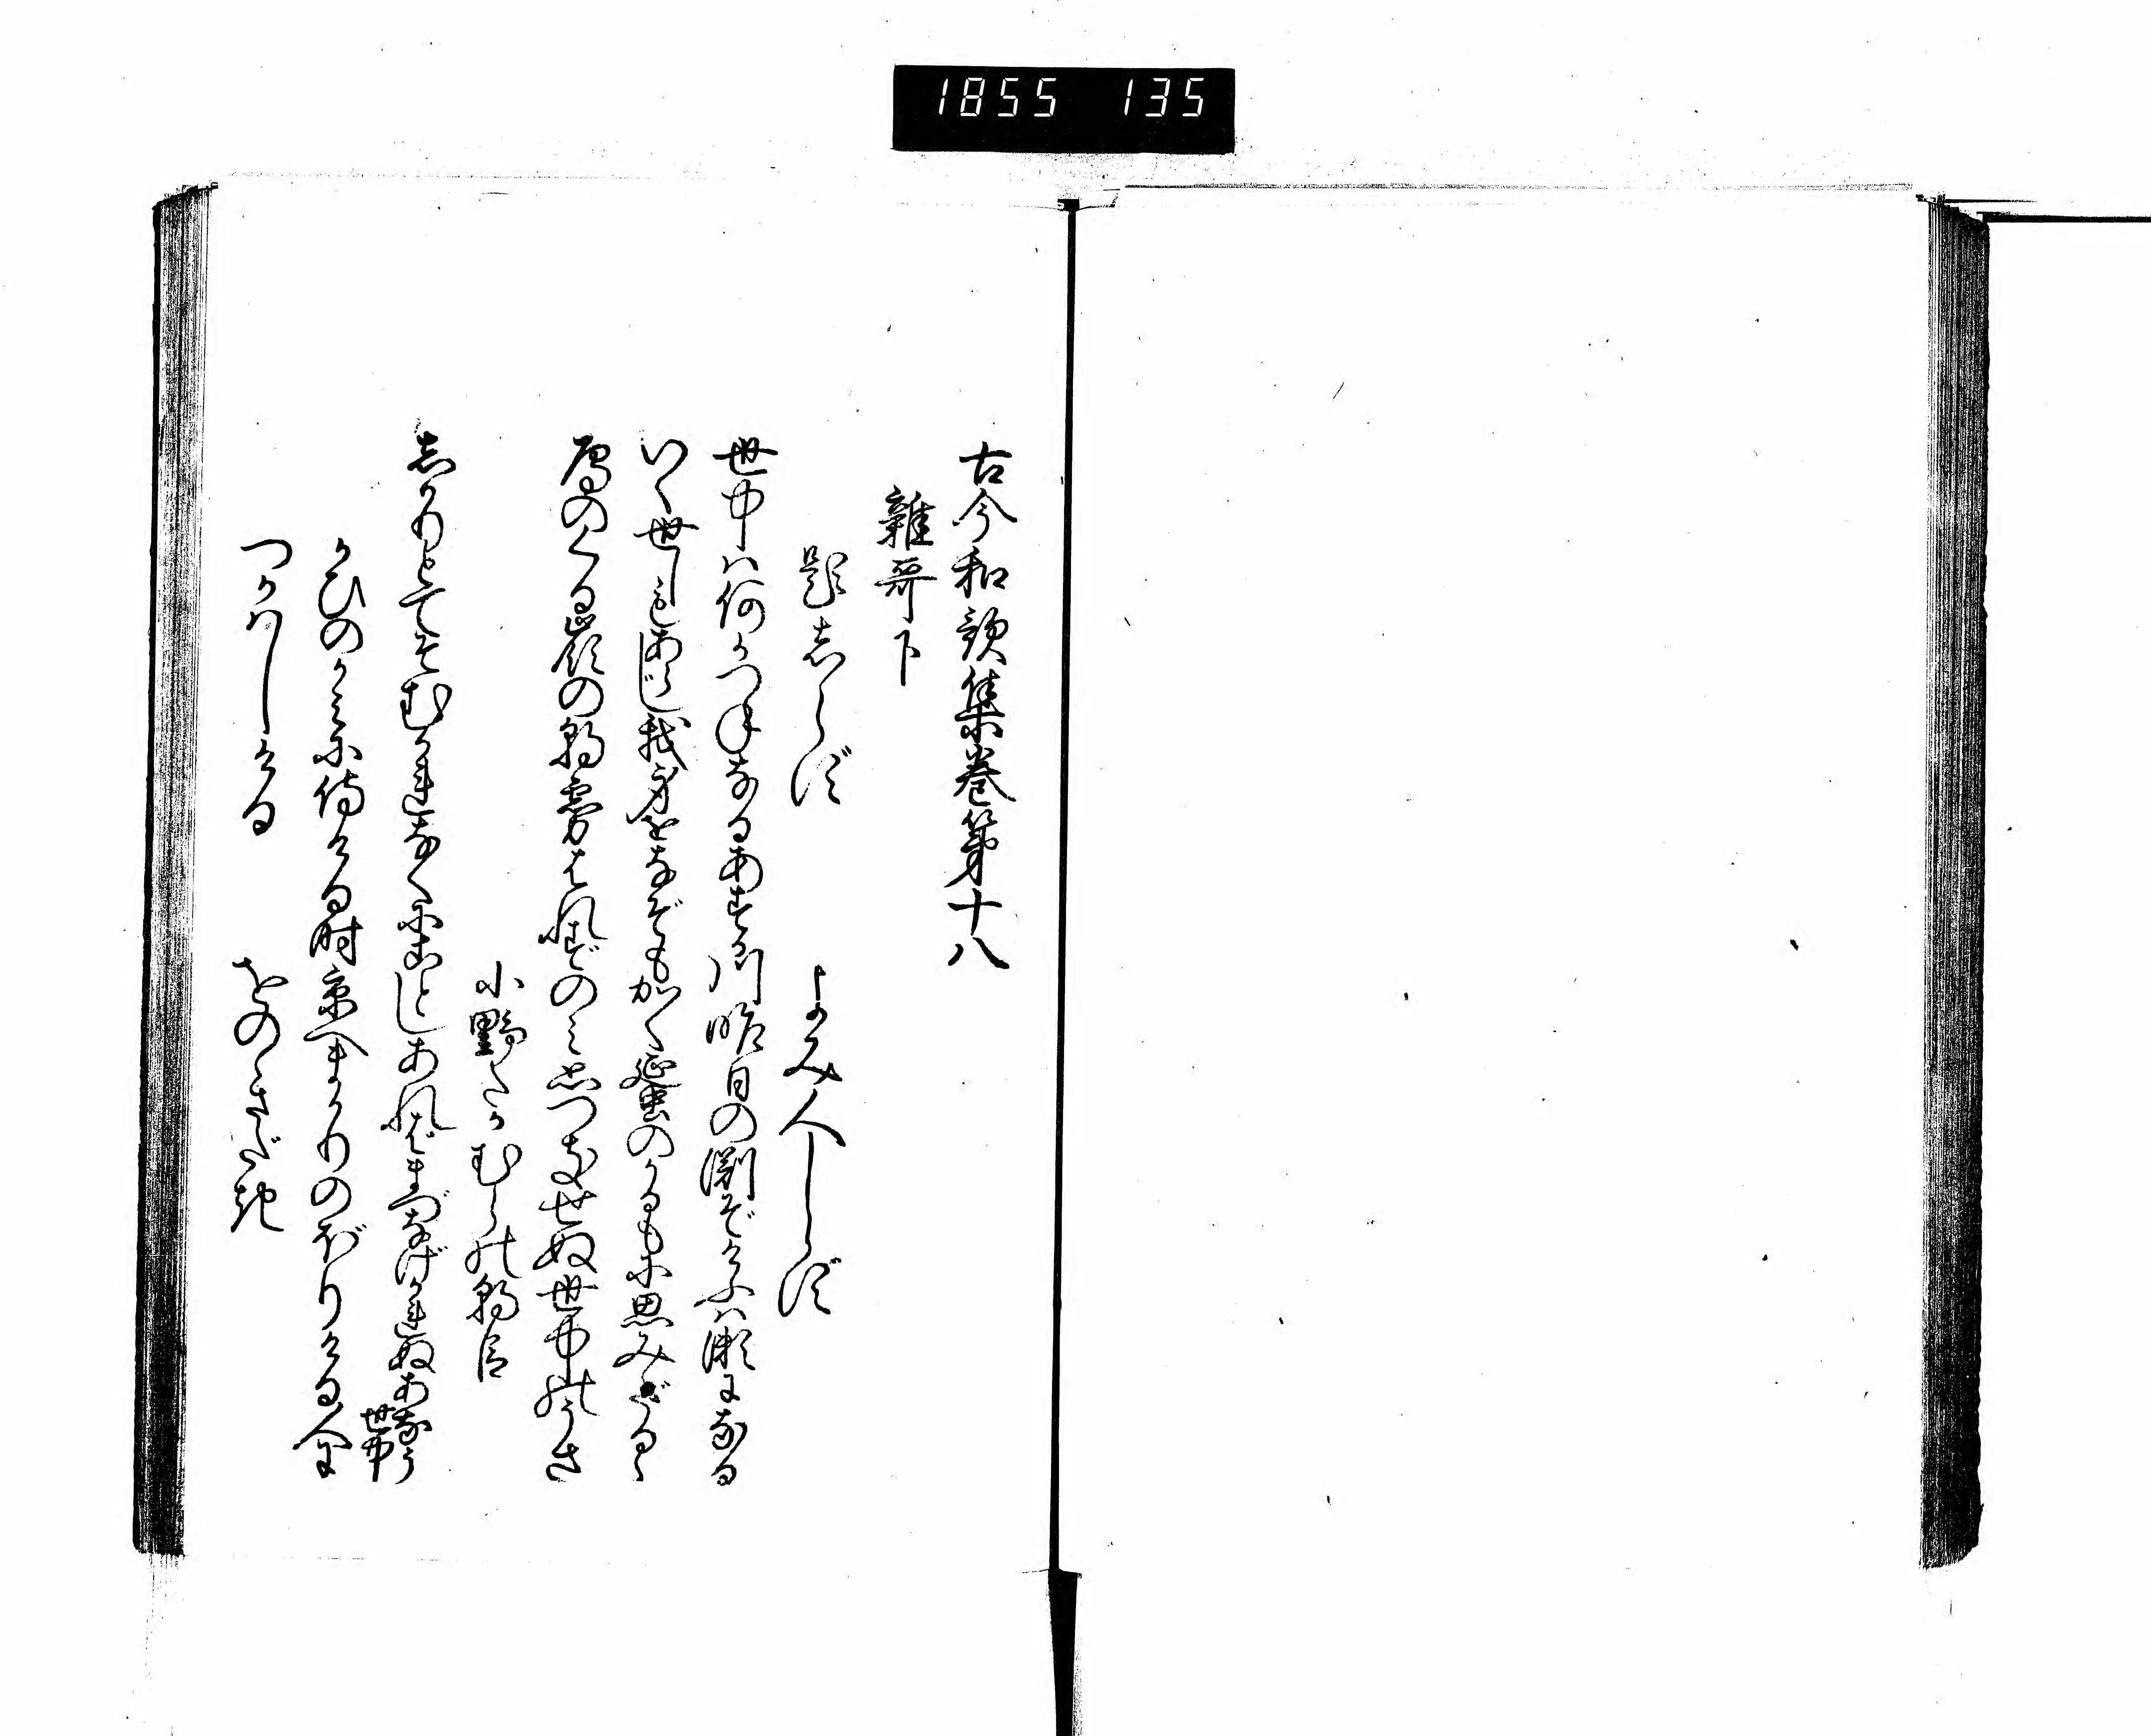 1855 135
古今和謌集巻第十八
雑哥下
題しらず よみ人しらず
世中は何かつねなるあすか川昨日の淵ぞけふは瀬になる
いく世しもあらじ我身をなぞもかく蜑のかるもに思みだるゝ
鴈のくる嶺の朝霧はれずのみ思つきせぬ世中のうさ
小野たかむらの朝臣
しかりとてそむかれなくにことしあればまづなげかれぬあなう世中
かひのかみに侍ける時京へまかりのぼりける人に
つかはしける をのゝさだき